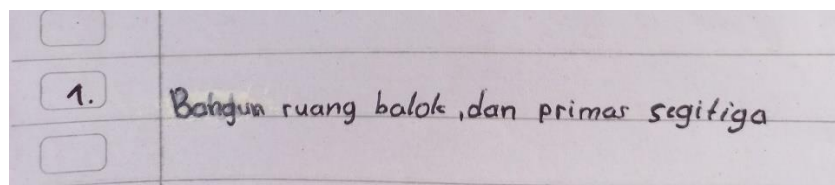 1. Bangun ruang balok, dan primas segitiga